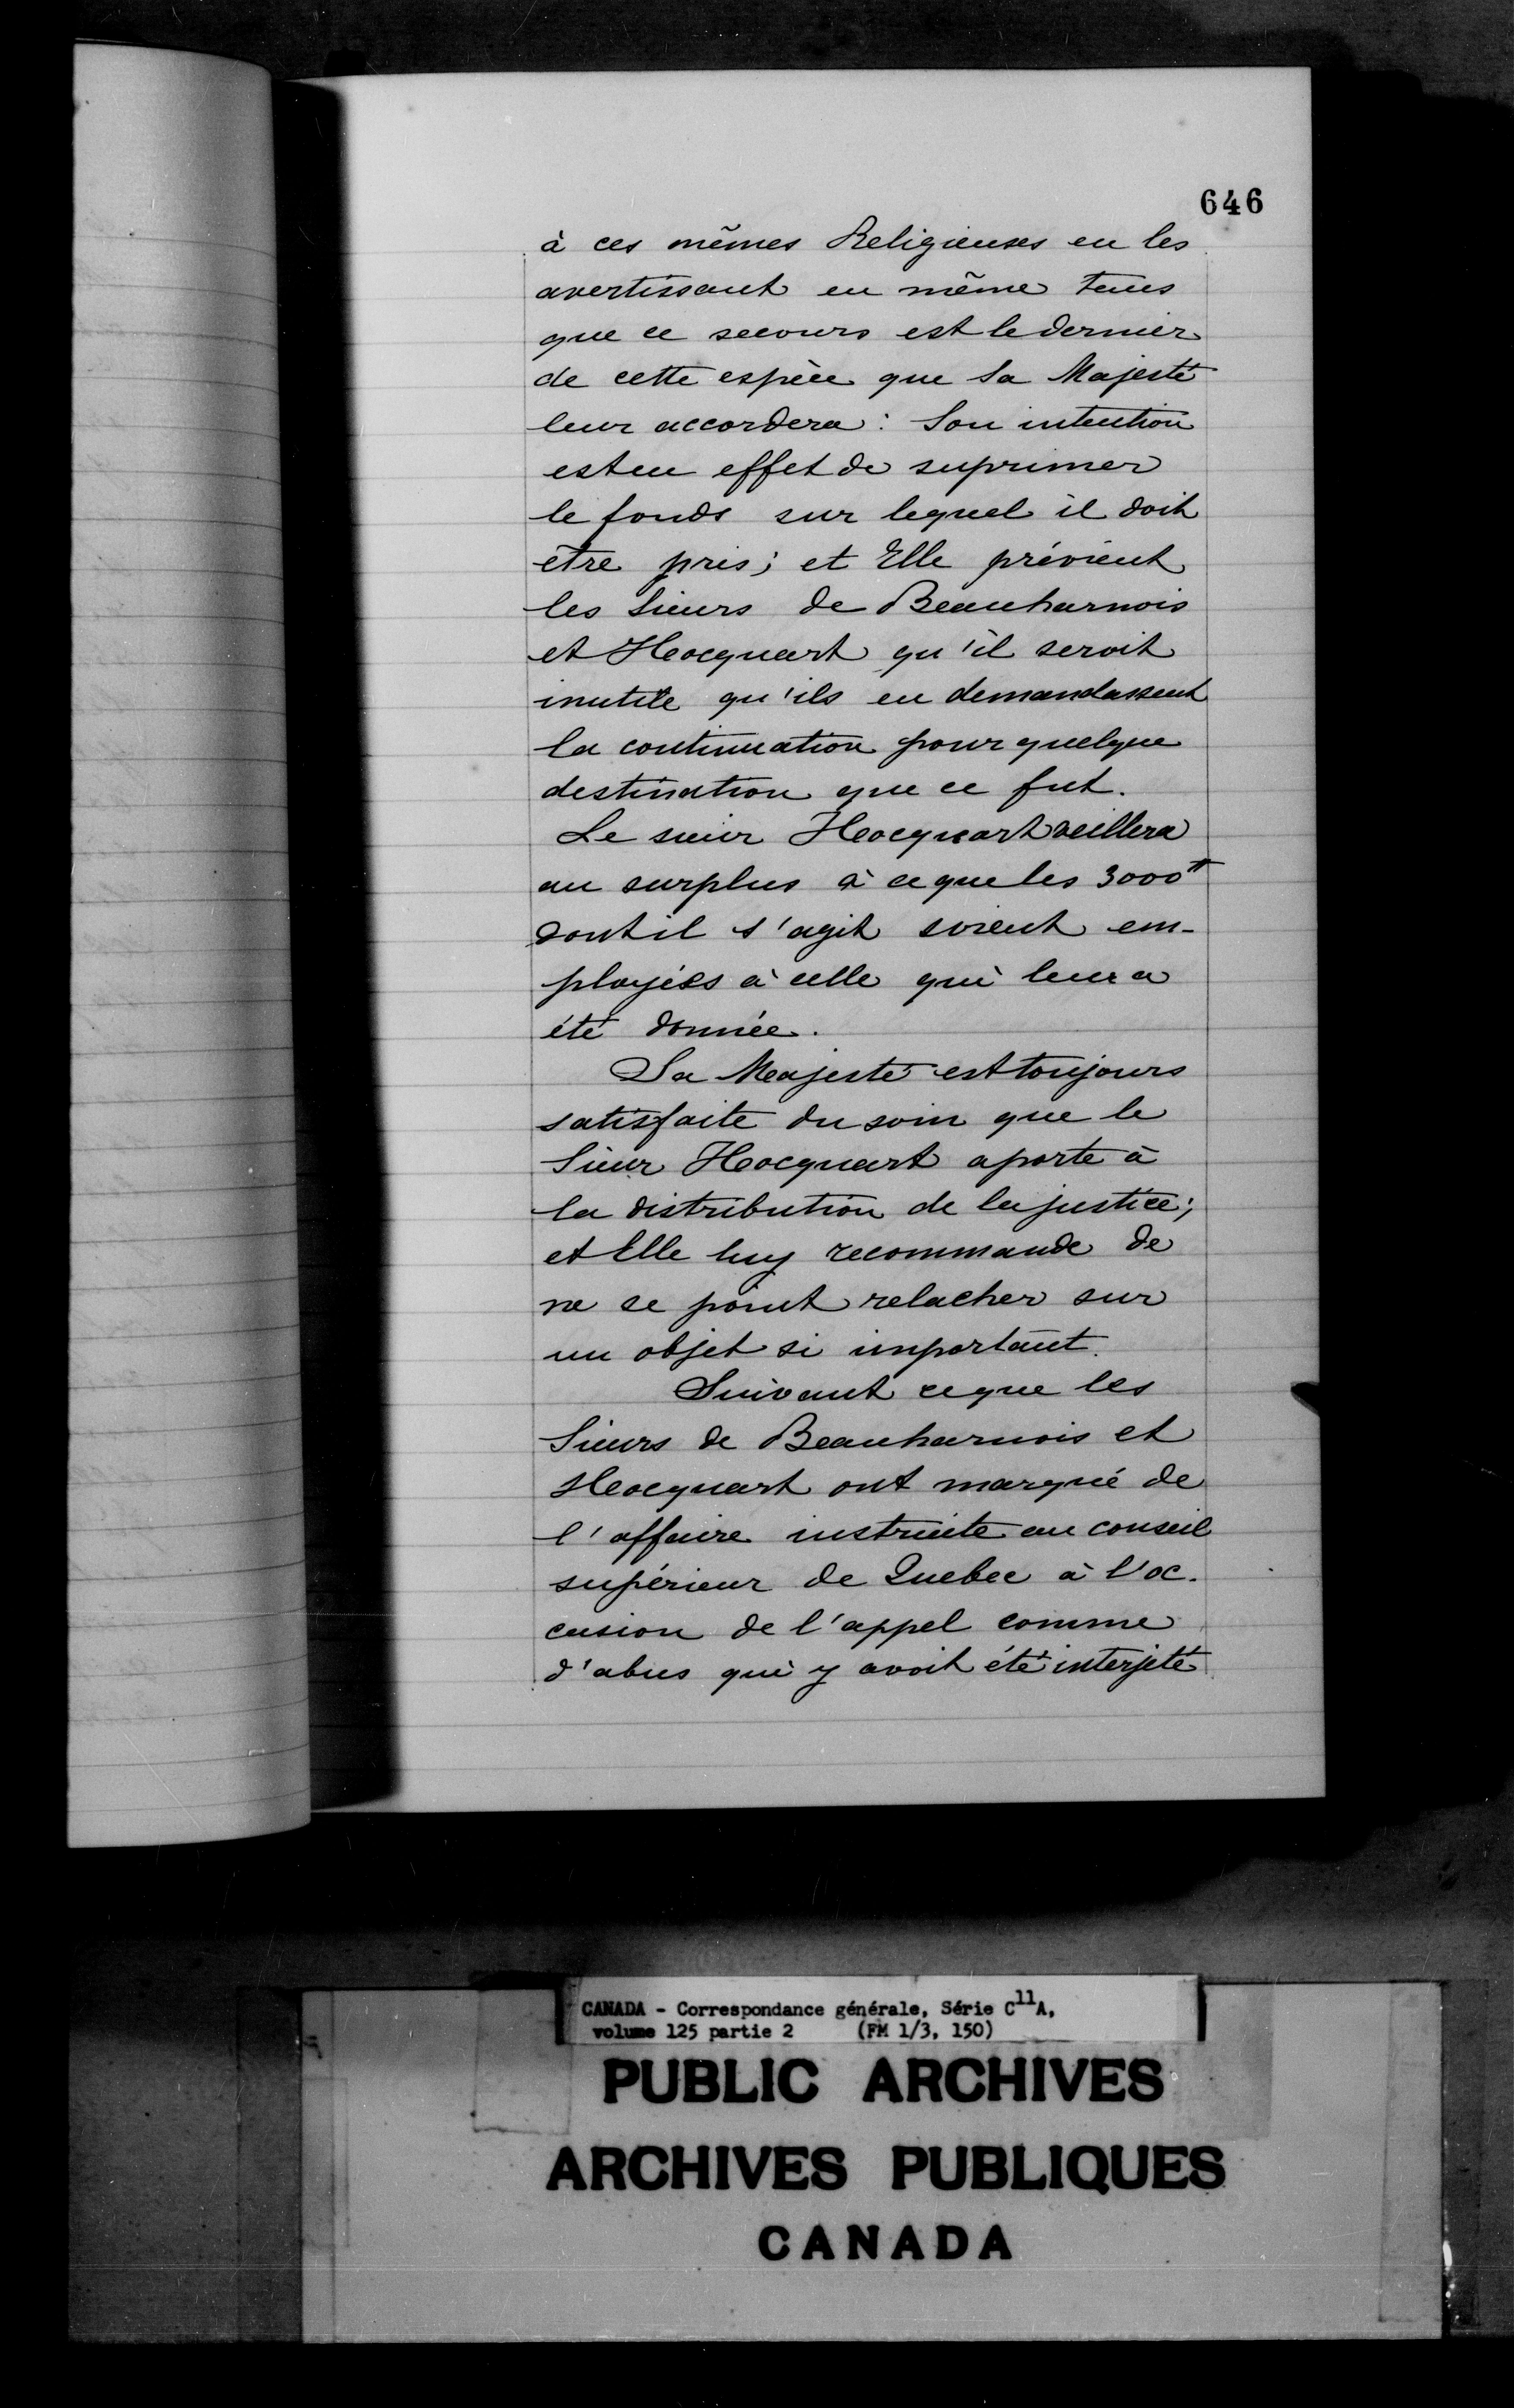 646
à ces mêmes Religieuses en les
avertissant en même tems
que ce secours est le dernier
de cette espèce que Sa Majesté
leur accordera : Son intention
est en effet de suprimer
le fonds sur lequel il doit
être pris; et Elle prévient
les Sieurs de Beauharnois
et Hocquart qu'il seroit
inutile qu'ils en demandassent
la continuation pour quelque
destination que ce fut.
Le sieur Hocquart veillera
au surplus à ce que les 3000ᵗᵗ
dont il s'agit soient em-
ployées à celle qui leur a
été donnée.
Sa Majesté est toujours
satisfaite du soin que le
Sieur Hocquart aporte à
la distribution de la justice;
et Elle luy recommande de
ne se point relacher sur
un objet si important.
Suivant ce que les
Sieurs de Beauharnois et
Hocquart ont marqué de
l'affaire instruite au conseil
supérieur de Quebec à l'oc-
casion de l'appel comme
d'abus qui y avoit été interjeté
CANADA - Correspondance générale, Série C¹¹A,
volume 125 partie 2 (FM 1/3, 150)
PUBLIC ARCHIVES
ARCHIVES PUBLIQUES
CANADA